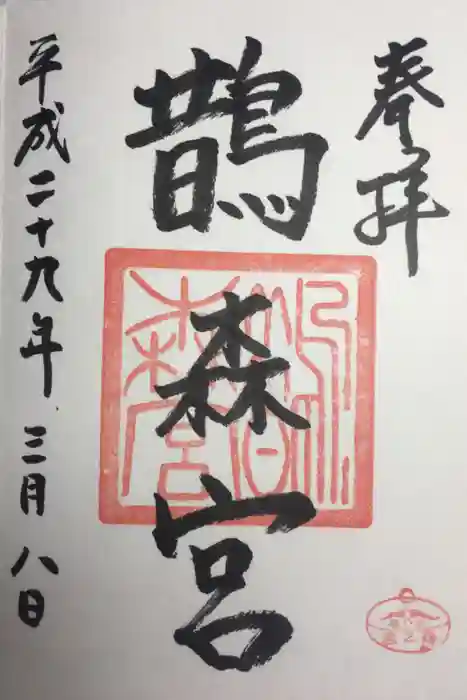 奉拝
鵲森宮
平成二十九年三月八日